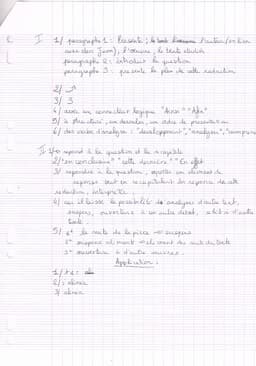 I 1/ paragraphe 1 : Présenter l'auteur (en lien
avec don Juan), l'oeuvre, le texte étudié
paragraphe 2 : introduit la question
paragraphe 3 : présente le plan de cette rédaction
2/
3/ 3
4/ avec un connecteur logique "Ainsi" "Afin"
5/ à structurer, un dérouler, un ordre de présentation
6/ des verbes d'analyse : "développement", "analyse",
II 1/ répond à la question et la récapitule
2/ "en conclusion" "cette dernière" "En effet
3/ répondre à la question, apporter un élément de
réponse tout en récapitulant les réponses de cette
rédaction, interpréter
4/ car il laisse la possibilité d'analyser d'autre texte,
suspens, ouverture à un autre débat,
texte.
5/ 1° la suite de la pièce → suspens
2° suspens → élément du suite du texte
3° ouverture à d'autre oeuvres.
Application :
1/
2/ alinéa
3/ alinéa